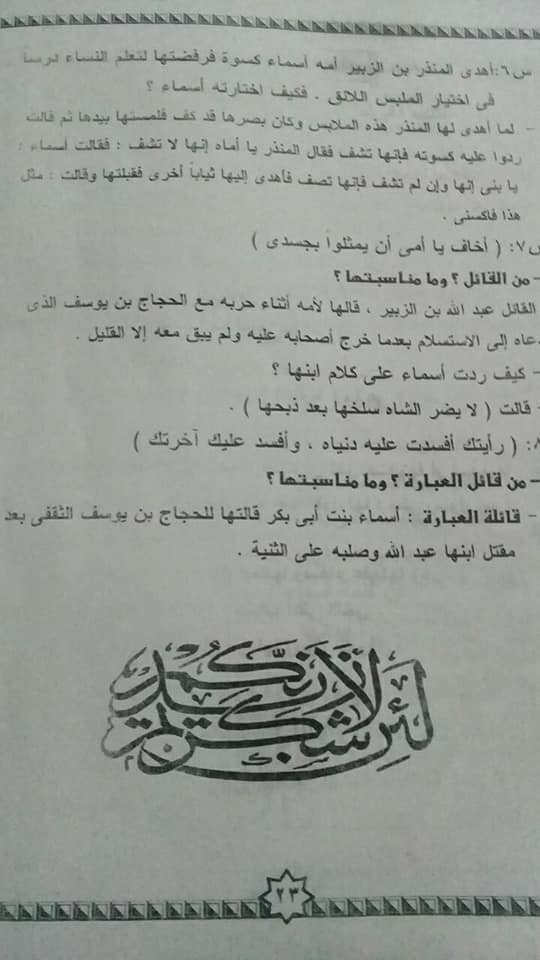 س٦: أهدى المنذر بن الزبير أمه أسماء كسوة فرفضتها لتعلم النساء درساً
فى اختيار الملبس اللائق . فكيف اختارته أسماء ؟
- لما أهدى لها المنذر هذه الملابس وكان بصرها قد كف فلمستها بيدها ثم قالت
ردوا عليه كسوته فإنها تشف فقال المنذر يا أماه إنها لا تشف : فقالت أسماء :
يا بنى إنها وإن لم تشف فإنها تصف فأهدى إليها ثياباً أخرى فقبلتها وقالت : مثل
هذا فاكسنى .
س٧: ( أخاف يا أمى أن يمثلوا بجسدى )
- من القائل ؟ وما مناسبتها ؟
القائل عبد الله بن الزبير ، قالها لأمه أثناء حربه مع الحجاج بن يوسف الذى
دعاه إلى الاستسلام بعدما خرج أصحابه عليه ولم يبق معه إلا القليل .
- كيف ردت أسماء على كلام ابنها ؟
- قالت ( لا يضر الشاه سلخها بعد ذبحها ) .
٨: ( رأيتك أفسدت عليه دنياه ، وأفسد عليك آخرتك )
- من قائل العبارة ؟ وما مناسبتها ؟
- قائلة العبارة : أسماء بنت أبى بكر قالتها للحجاج بن يوسف الثقفى بعد
مقتل ابنها عبد الله وصلبه على الثنية .
لئن شكرتم لأزيدنكم
٢٣